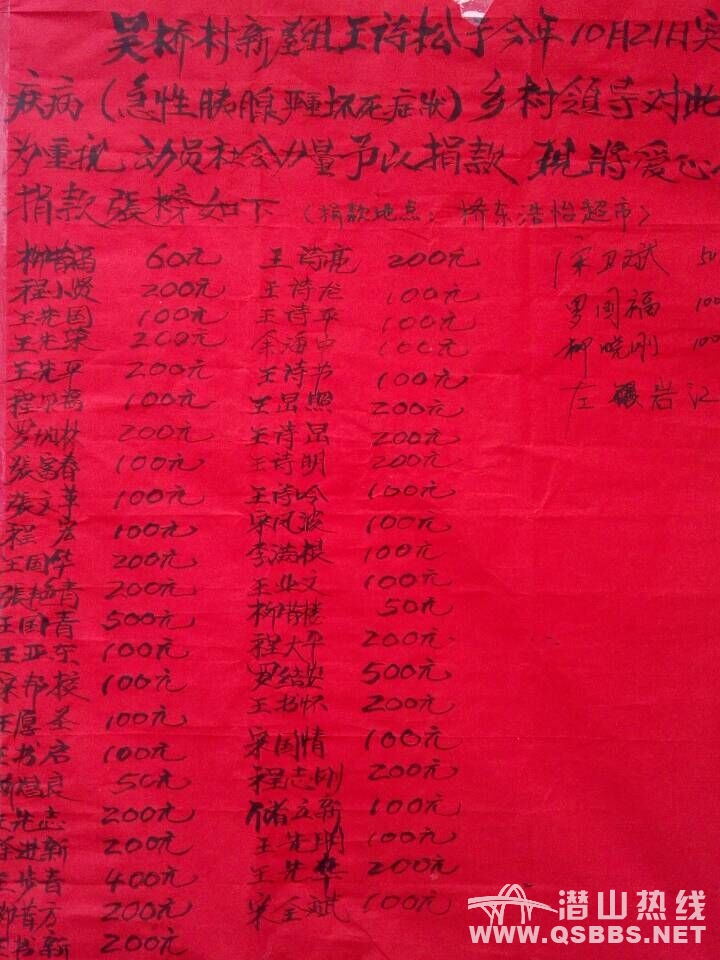 吴桥村新差组王诗松于今年10月21日突
疾病(急性胰腺严重坏死症状)乡村领导对此
为重视 动员社会力量予以捐款 现将爱心
捐款张榜如下 (捐款地点:桥东浩怡超市)
60元 王诗亮 200元
程小贤 200元 王诗龙 100元 罗国福
王先国 100元 王诗平 100元 柳晓刚
王先荣 200元 余海中 100元 左银岩
王先平 200元 王诗书 100元
100元 王昆照 200元
200元 王诗昆 200元
张富春 100元 王诗明 200元
张文革 100元 王诗吟 100元
程宏 100元 宋风波 100元
王国华 200元 李满根 100元
张艳青 200元 王业文 100元
王国青 500元 50元
王亚东 100元 程大平 200元
100元 罗结安 500元
王愿圣 100元 王书怀 200元
王书启 100元 宋国情 100元
50元 程志刚 200元
王先志 200元 储立新 100元
徐进新 200元 王先明 100元
王步青 400元 王先华 200元
200元 宋全斌 100元
王书新 200元
潜山热线
WWW.QSBBS.NET